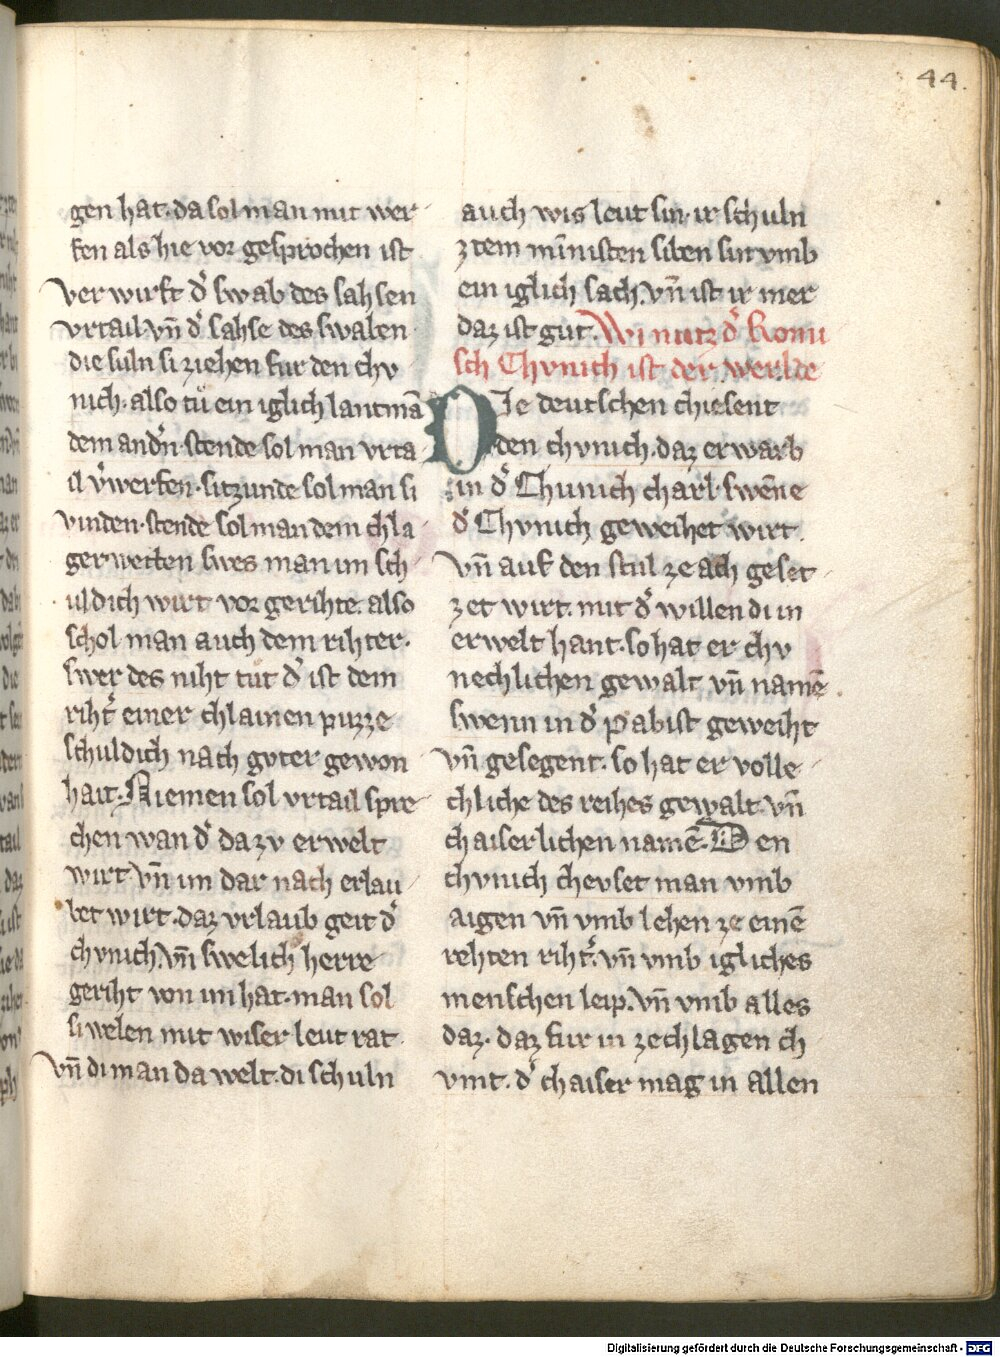 44.
gen hat. da sol man mit wer
fen als hie vor gesprochen ist
Ver wirft d̉ swab des sahsen
vrtail vn̄ d̉ sahse des swaben
die suln si ziehen fur den chv
nich. also tů ein iglich lantmā
dem andn̉ stende sol man vrta
il v̉werfen. sitzunde sol man si
vinden. stende sol man dem chla
gerwetten swes man im sch
uldich wirt vor gerihte. also
schol man auch dem rihter.
swer des niht tut d̉ ist dem
riht̉ einer chlainen puzze
schuldich nach guter gewon
hait. Niemen sol vrtail spre
chen wan d̉ da zv erwelt
wirt vn̄ im dar nach erlau
bet wirt. daz vrlaub geit d̉
chvnich. Vn̄ swelich herre
geriht von im hat. man sol
si welen mit wiser leut rat
Vn̄ di man da welt. di schuln
auch wis leut sin. ir schuln
ztem mīnisten siben sin vmb
ein iglich sach. Vn̄ ist ir mer
daz ist gut. Wi nutz d̉ Romi
sch Chvnich ist der werlde
DIe deutschen chiesent
den chvnich. daz erwarb
in d̉ Chunich charl. swēne
d̉ Chvnich geweihet wirt.
Vn̄ auf den stul ze ach geset
zet wirt. mit d̉ willen di in
erwelt hant. so hat er chv
nechlichen gewalt vn̄ namē
swenn in d̉ pabist geweiht
Vn̄ gesegent. so hat er volle
chliche des reihes gewalt. vn̄
chaiserlichen namē. Den
chvnich chevset man vmb
aigen vn̄ vmb lehen ze einē
rehten riht̉. vn̄ vmb igliches
menschen leip. Vn̄ vmb alles
daz. daz fur in ze chlagen ch
vmt. d̉ chaiser mag in allen
Digitalisierung gefördert durch die Deutsche Forschungsgemeinschaft - DFG